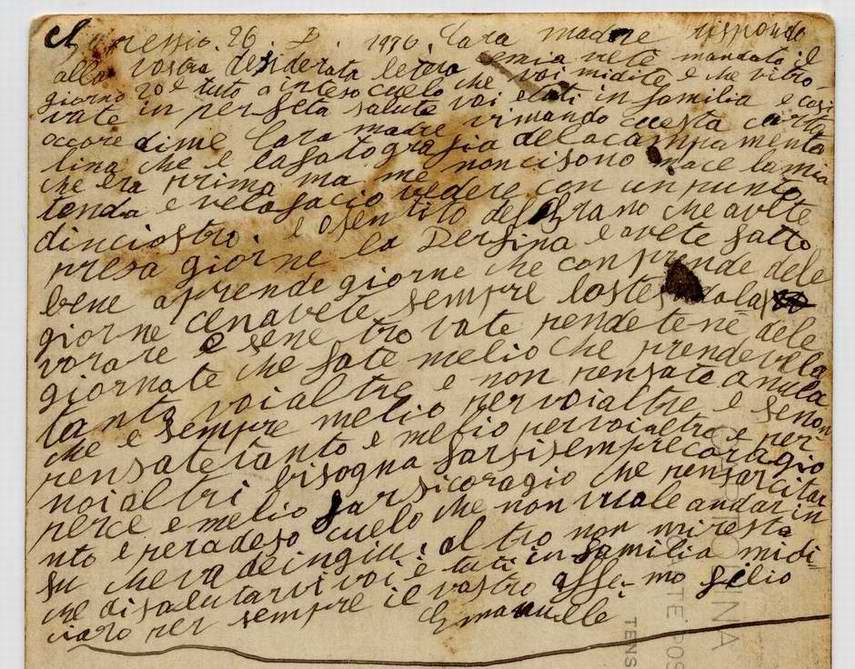 26. 1916. Cara madre rispondo
alla vostra desiderata letera semia vete mandato il
giorno 20 e tuto o inteso cuelo che voi midite e che vitro-
vate in perfeta salute voi e tuti in familia e cosi
occore dime Cara madre vimando cuesta carta
lina che e lafatografia delacampamento
che era prima ma me noncisono mace lamia
tenda e velofacio vedere con unpunto
dinciostro. e osentito del grano che avete
presa giorne la Derfina e avete fatto
bene aprende giorne che conprende dele
giorne cenavete sempre lostes dala
vorare e sene trovate prendetene dele
giornate che fate melio che prendevela
tanto voialtre e non pensate anula
che e sempre melio pervoialtre e senon
pensate tanto e melio pervoialtre e per
noialtri bisogna farsi sempre coragio
perce e melio farsicoragio che pensarcitan
nto e peradeso cuelo che non vuole andar in
su cheva deingiu. altro non miresta
che disalutarvi voi e tuti in familia midi=
ciaro per sempre il vostro affe-mo filio
Emanuelle
INA
TENS